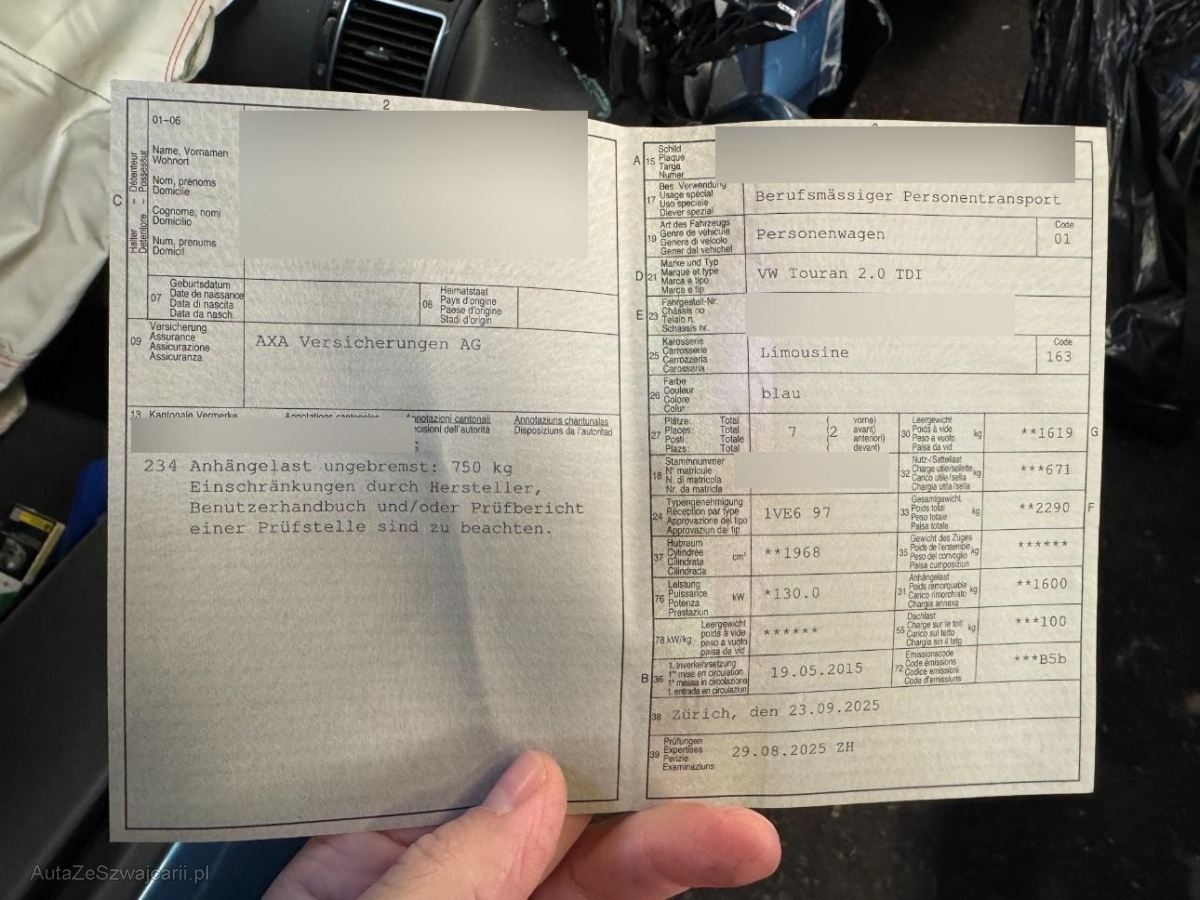 2
01-06
Halter - Détenteur
Detentore - Possessur
C
Name, Vornamen
Wohnort
Nom, prénoms
Domicile
Cognome, nomi
Domicilio
Num, prenums
Domicil
07
Geburtsdatum
Date de naissance
Data di nascita
Data da nasch.
08
Heimatstaat
Pays d'origine
Paese d'origine
Stadi d'origin
09
Versicherung
Assurance
Assicurazione
Assicuranza
AXA Versicherungen AG
13 Kantonale Vermerke
Annotations cantonales
Annotazioni cantonali
Annotaziuns chantunalas
Disposiziuns da l'autoritad
234 Anhängelast ungebremst: 750 kg
Einschränkungen durch Hersteller,
Benutzerhandbuch und/oder Prüfbericht
einer Prüfstelle sind zu beachten.
A 15
Schild
Plaque
Targa
Numer
17
Bes. Verwendung
Usage spécial
Uso speciale
Diever spezial
Berufsmässiger Personentransport
19
Art des Fahrzeugs
Genre de véhicule
Genere di veicolo
Gener dal vehichel
Personenwagen
Code
01
D 21
Marke und Typ
Marque et type
Marca e tipo
Marca e tip
VW Touran 2.0 TDI
E 23
Fahrgestell-Nr.
Châssis no
Telaio n.
Schassis nr.
25
Karosserie
Carrosserie
Carrozzeria
Carossaria
Limousine
Code
163
26
Farbe
Couleur
Colore
Colur
blau
27
Plätze: Total
Places: Total
Posti: Totale
Plazs: Total
7
(2
vorne)
avant)
anteriori)
davant)
30
Leergewicht
Poids à vide
Peso a vuoto
Paisa da vid
kg
**1619
G
18
Stammnummer
N° matricule
N. di matricola
Nr. da matricla
32
Nutz-/Sattellast
Charge utile/sellette
Carico utile/sella
Chargia utila/sella
kg
***671
24
Typengenehmigung
Réception par type
Approvazione del tipo
Approvaziun dal tip
1VE6 97
33
Gesamtgewicht
Poids total
Peso totale
Paisa totala
kg
**2290
F
37
Hubraum
Cylindrée
Cilindrata
Cilindrada
cm³
**1968
35
Gewicht des Zuges
Poids de l'ensemble
Peso del convoglio
Paisa cumposiziun
kg
******
76
Leistung
Puissance
Potenza
Prestaziun
kW
*130.0
31
Anhängelast
Poids remorquable
Carico rimorchiato
Chargia annexa
kg
**1600
78 kW/kg
Leergewicht
poids à vide
peso a vuoto
paisa da vid
******
55
Dachlast
Charge sur le toit
Carico sul tetto
Chargia sin il tetg
kg
***100
B 36
1. Inverkehrsetzung
1re mise en circulation
1a messa in circolazione
1. entrada en circulaziun
19.05.2015
72
Emissionscode
Code émissions
Codice emissioni
Code d'emissiuns
***B5b
38 Zürich, den 23.09.2025
39
Prüfungen
Expertises
Perizie
Examinaziuns
29.08.2025 ZH
AutaZeSzwajcarii.pl